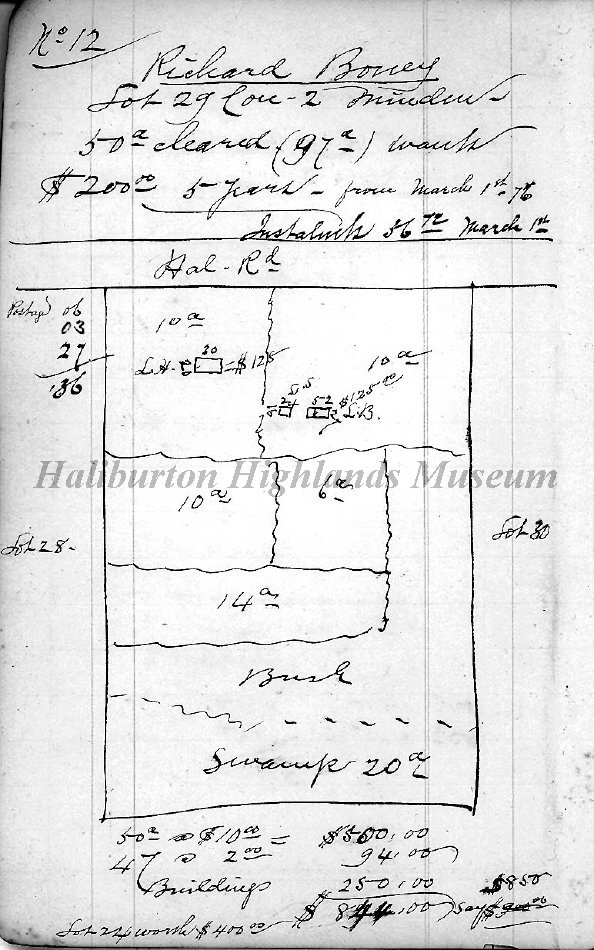 No 12
Richard Boney
Lot 29 Con-2 Minden
50a cleared (97a) wants
$200.00 5 years - from March 1st 76
Instalmts 56.72 March 1st
Hal-Rd
Postage 06
03
27
.36
10a
L.H. 20 = $125
10a
L.S
24
52
$125.00
L.B.
Haliburton Highlands Museum
10a
6a
Lot 28-
Lot 30
14a
Bush
Swamp 20a
50a @ $10.00 = $500.00
47 @ 2.00 94.00
Buildings 250.00
$844.00 say $850
Lot 24 worth $400.00